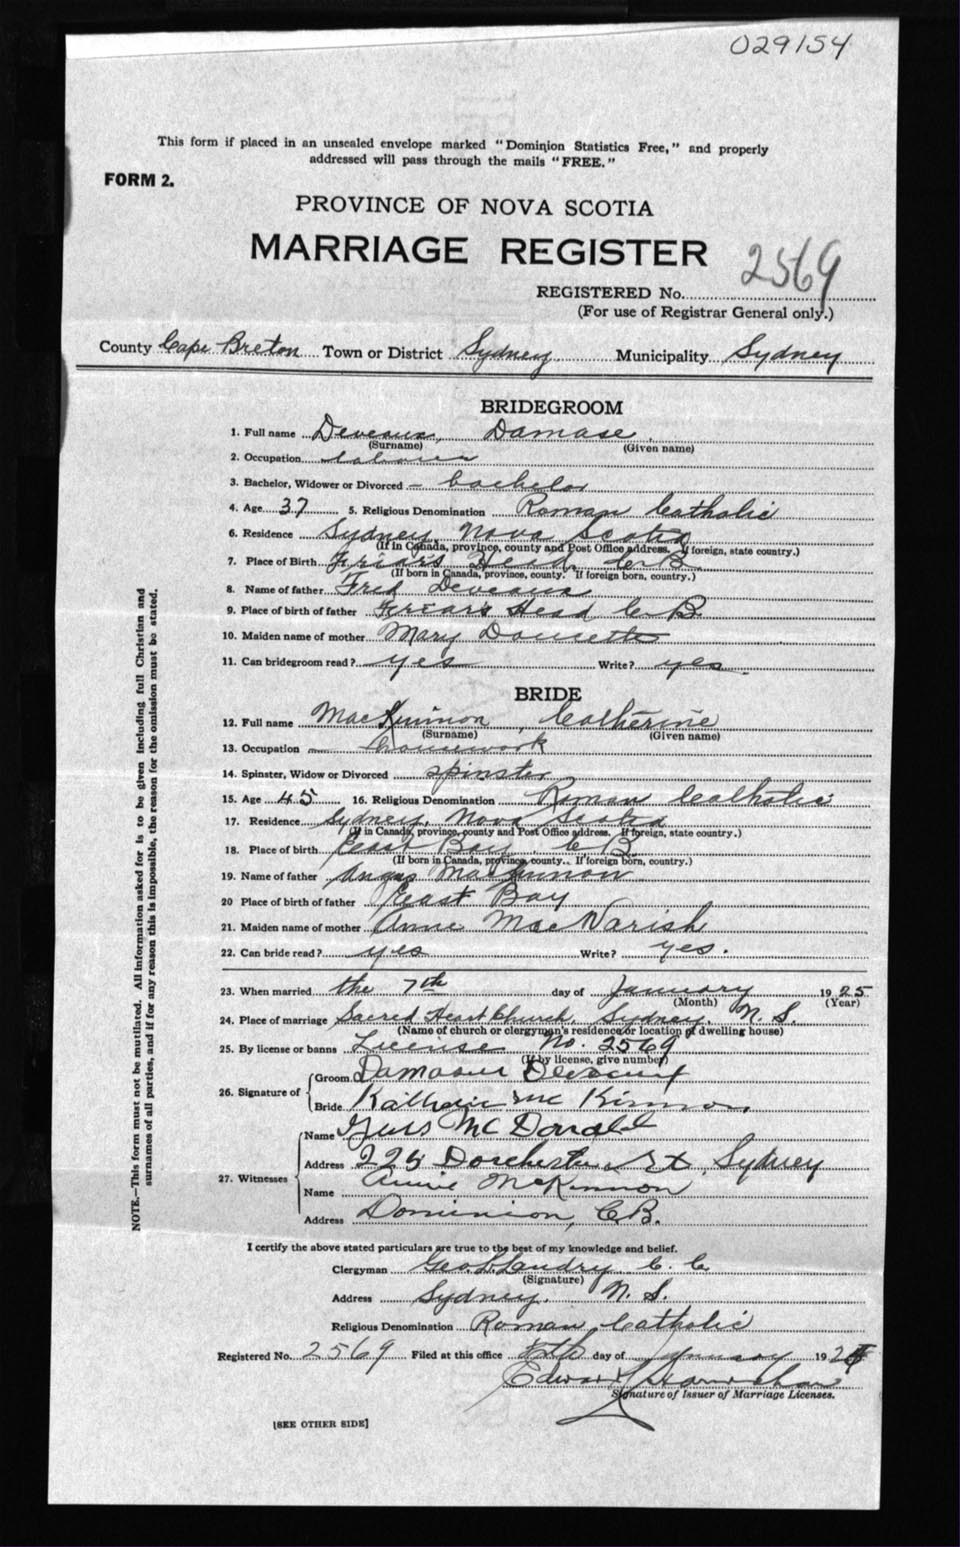 029154
This form if placed in an unsealed envelope marked "Dominion Statistics Free," and properly
addressed will pass through the mails "FREE."
FORM 2.
PROVINCE OF NOVA SCOTIA
MARRIAGE REGISTER
2569
REGISTERED No.
(For use of Registrar General only.)
County Cape Breton Town or District Sydney Municipality Sydney
BRIDEGROOM
1. Full name Deveaux, Damase
(Surname) (Given name)
2. Occupation labourer
3. Bachelor, Widower or Divorced - bachelor
4. Age 37 5. Religious Denomination Roman Catholic
6. Residence Sydney, Nova Scotia
(If in Canada, province, county and Post Office address. If foreign, state country.)
7. Place of Birth Friar's Head, C.B.
(If born in Canada, province, county. If foreign born, country.)
8. Name of father Fred Deveaux
9. Place of birth of father Friar's Head C.B.
10. Maiden name of mother Mary Doucette
11. Can bridegroom read? yes Write? yes
BRIDE
12. Full name MacKinnon, Catherine
(Surname) (Given name)
13. Occupation housework
14. Spinster, Widow or Divorced spinster
15. Age 45 16. Religious Denomination Roman Catholic
17. Residence Sydney, Nova Scotia
(If in Canada, province, county and Post Office address. If foreign, state country.)
18. Place of birth East Bay, C.B.
(If born in Canada, province, county.. If foreign born, country.)
19. Name of father Angus MacKinnon
20 Place of birth of father East Bay
21. Maiden name of mother Anne MacVarish
22. Can bride read? yes Write? yes.
23. When married the 7th day of January 1925
(Month) (Year)
24. Place of marriage Sacred Heart Church, Sydney, N.S.
(Name of church or clergyman's residence or location of dwelling house)
25. By license or banns License No. 2569
(If by license, give number)
26. Signature of
Groom Deveaux
Bride Mc Kinnon
27. Witnesses
Name Gus McDonald
Address 225 Dorchester St, Sydney
Name Annie McKinnon
Address Dominion, C.B.
I certify the above stated particulars are true to the best of my knowledge and belief.
Clergyman Geo. L. Landry C.C.
(Signature)
Address Sydney, N.S.
Religious Denomination Roman Catholic
Registered No. 2569 Filed at this office day of January 192
Edward
Signature of Issuer of Marriage Licenses.
[SEE OTHER SIDE]
NOTE.—This form must not be mutilated. All information asked for is to be given including full Christian and
surnames of all parties, and if for any reason this is impossible, the reason for the omission must be stated.